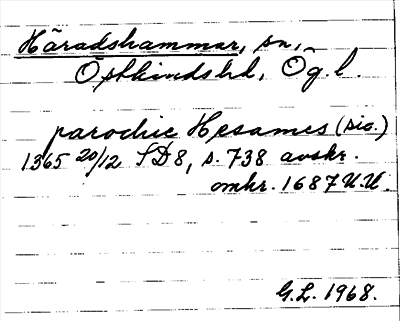 Häradshammar, sn,
Östkinds hd, Ög. l.
parochie Hesames (sic.)
1365 20/12 SD 8, s. 738 avskr.
omkr. 1687 U.U.
G.L. 1968.